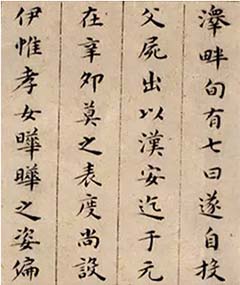 澤畔旬有七日遂自投
父屍出以漢安迄于元
在辛卯莫之表度尚設
伊惟孝女曄曄之姿偏